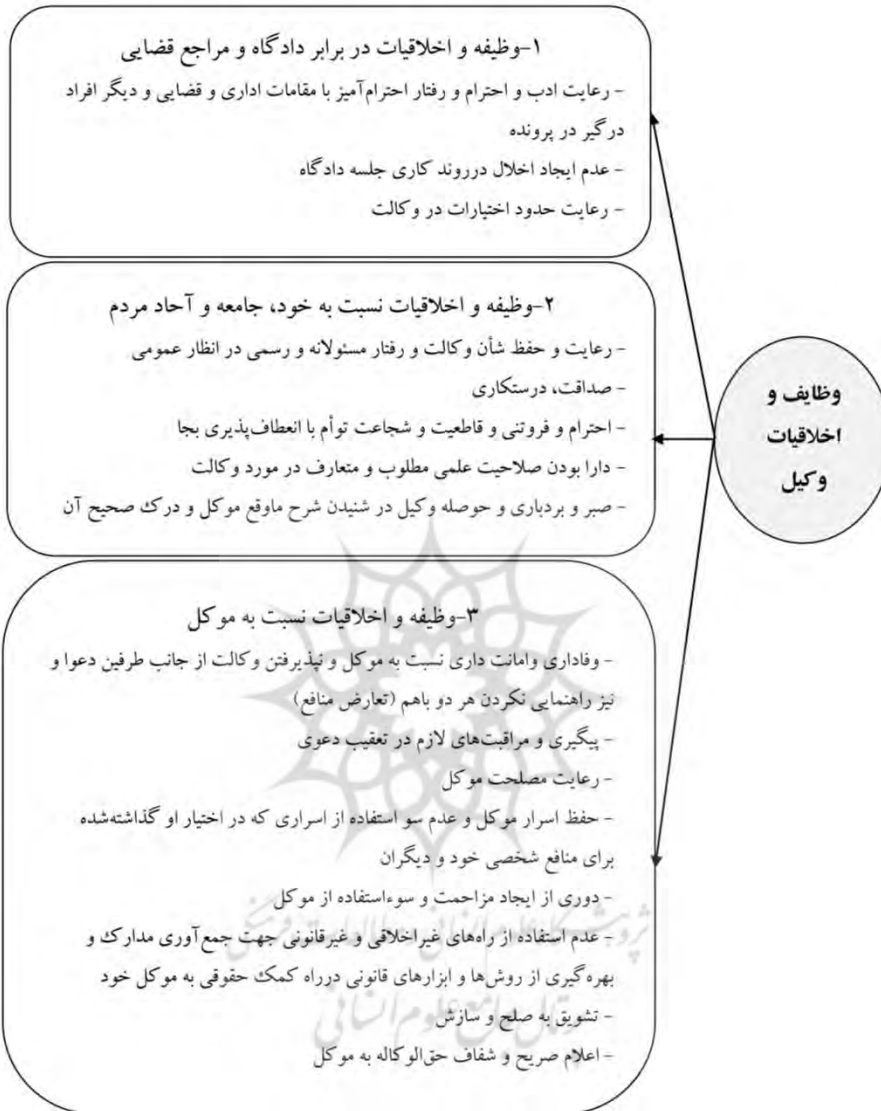 ۱-وظیفه و اخلاقیات در برابر دادگاه و مراجع قضایی
- رعایت ادب و احترام و رفتار احترام‌آمیز با مقامات اداری و قضایی و دیگر افراد
درگیر در پرونده
- عدم ایجاد اخلال درروند کاری جلسه دادگاه
- رعایت حدود اختیارات در وکالت
۲-وظیفه و اخلاقیات نسبت به خود، جامعه و آحاد مردم
- رعایت و حفظ شأن وکالت و رفتار مسئولانه و رسمی در انظار عمومی
- صداقت، درستکاری
- احترام و فروتنی و قاطعیت و شجاعت توأم با انعطاف‌پذیری بجا
- دارا بودن صلاحیت علمی مطلوب و متعارف در مورد وکالت
- صبر و بردباری و حوصله وکیل در شنیدن شرح ماوقع موکل و درک صحیح آن
۳-وظیفه و اخلاقیات نسبت به موکل
- وفاداری وامانت داری نسبت به موکل و نپذیرفتن وکالت از جانب طرفین دعوا و
نیز راهنمایی نکردن هر دو باهم (تعارض منافع)
- پیگیری و مراقبت‌های لازم در تعقیب دعوی
- رعایت مصلحت موکل
- حفظ اسرار موکل و عدم سو استفاده از اسراری که در اختیار او گذاشته‌شده
برای منافع شخصی خود و دیگران
- دوری از ایجاد مزاحمت و سوءاستفاده از موکل
- عدم استفاده از راه‌های غیراخلاقی و غیرقانونی جهت جمع‌آوری مدارک و
بهره‌گیری از روش‌ها و ابزارهای قانونی درراه کمک حقوقی به موکل خود
- تشویق به صلح و سازش
- اعلام صریح و شفاف حق‌الوکاله به موکل
وظایف و
اخلاقیات
وکیل
پژوهشگاه علوم انسانی و مطالعات فرهنگی
پرتال جامع علوم انسانی